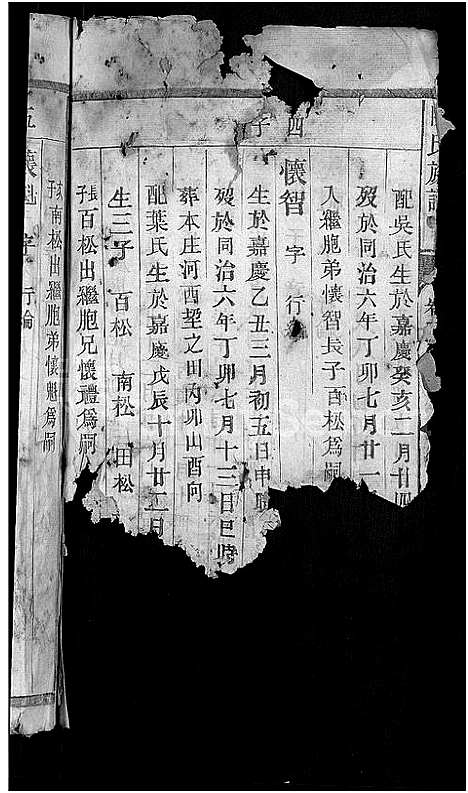 氏族譜
配吳氏生於嘉慶癸亥二月廿四
歿於同治六年丁卯七月廿一
入繼胞弟懷智長子百松爲嗣
四子
懷智 字 行
生於嘉慶乙丑三月初五日申時
歿於同治六年丁卯七月十三日巳時
葬本庄河西塱之田丙卯山酉向
配葉氏生於嘉慶戊辰十月廿二日
生三子 百松 南松 田松
長子百松出繼胞兄懷禮爲嗣
次子南松出繼胞弟懷魁爲嗣
五
懷魁 字 行倫